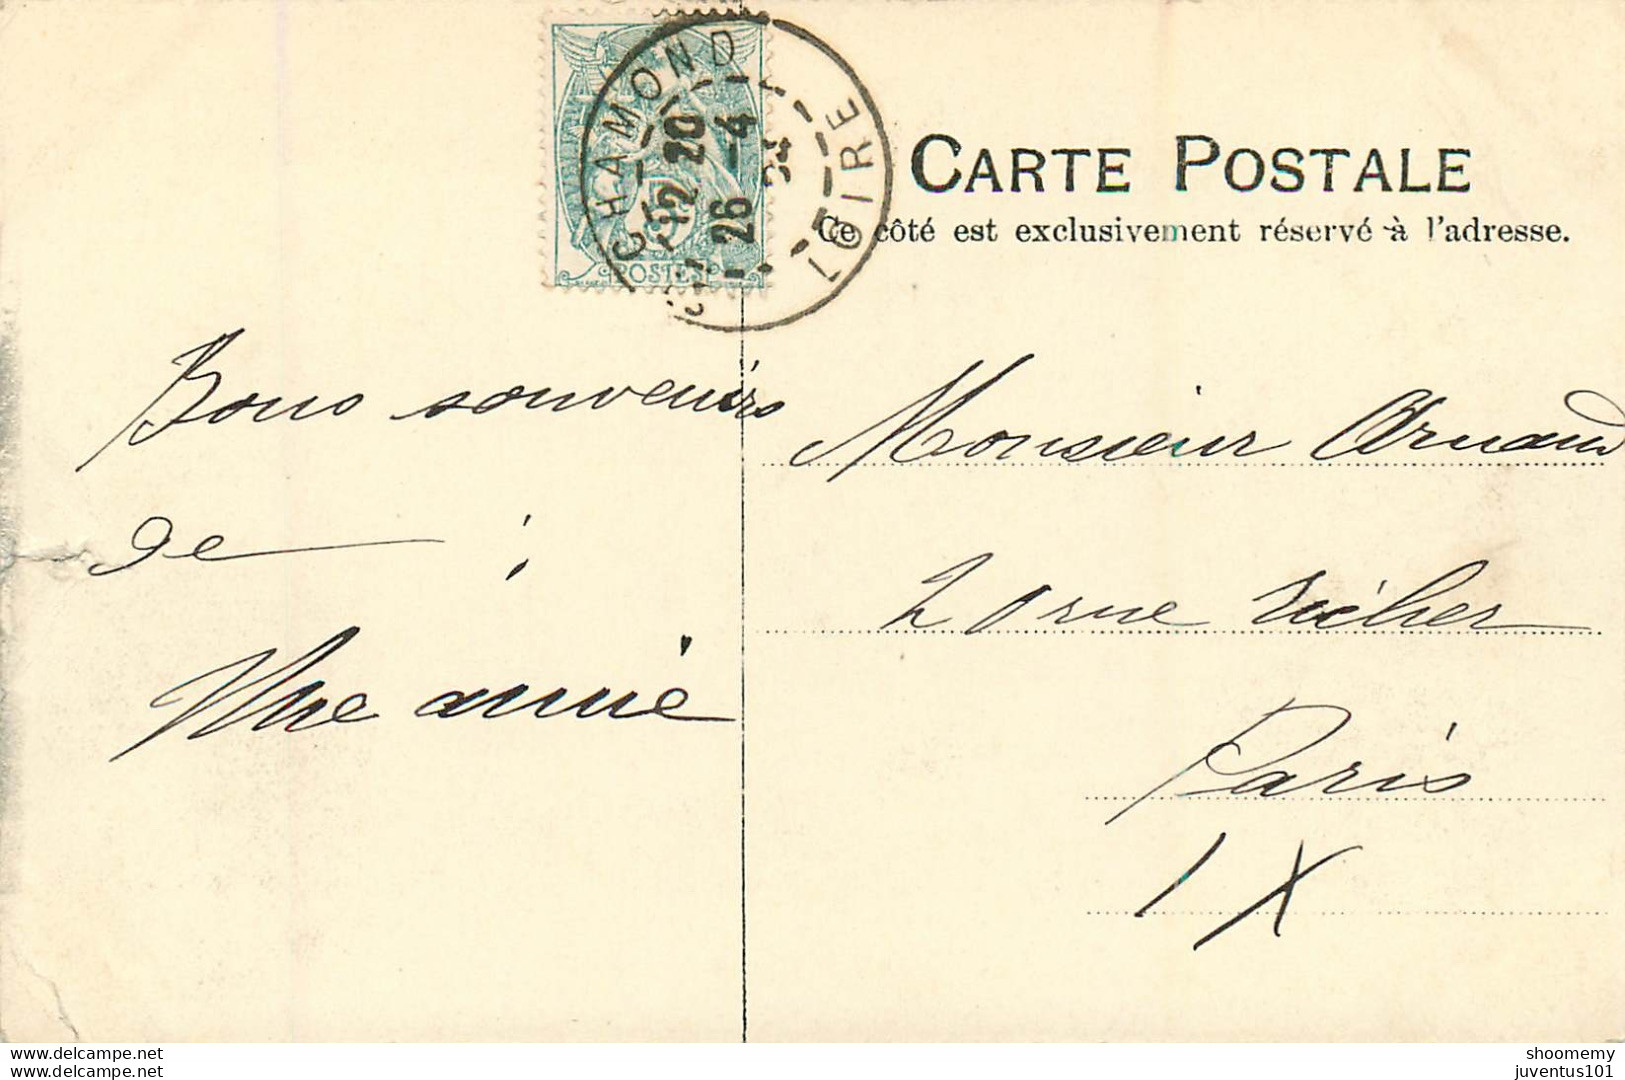 CHAMOND
LOIRE
12 20
26 -4
POSTES
CARTE POSTALE
Ce côté est exclusivement réservé à l'adresse.
Bons souvenirs
de
Une amie
Monsieur Arnaud
20 rue Richer
Paris
IX
www.delcampe.net
www.delcampe.net
shoomemy
juventus101